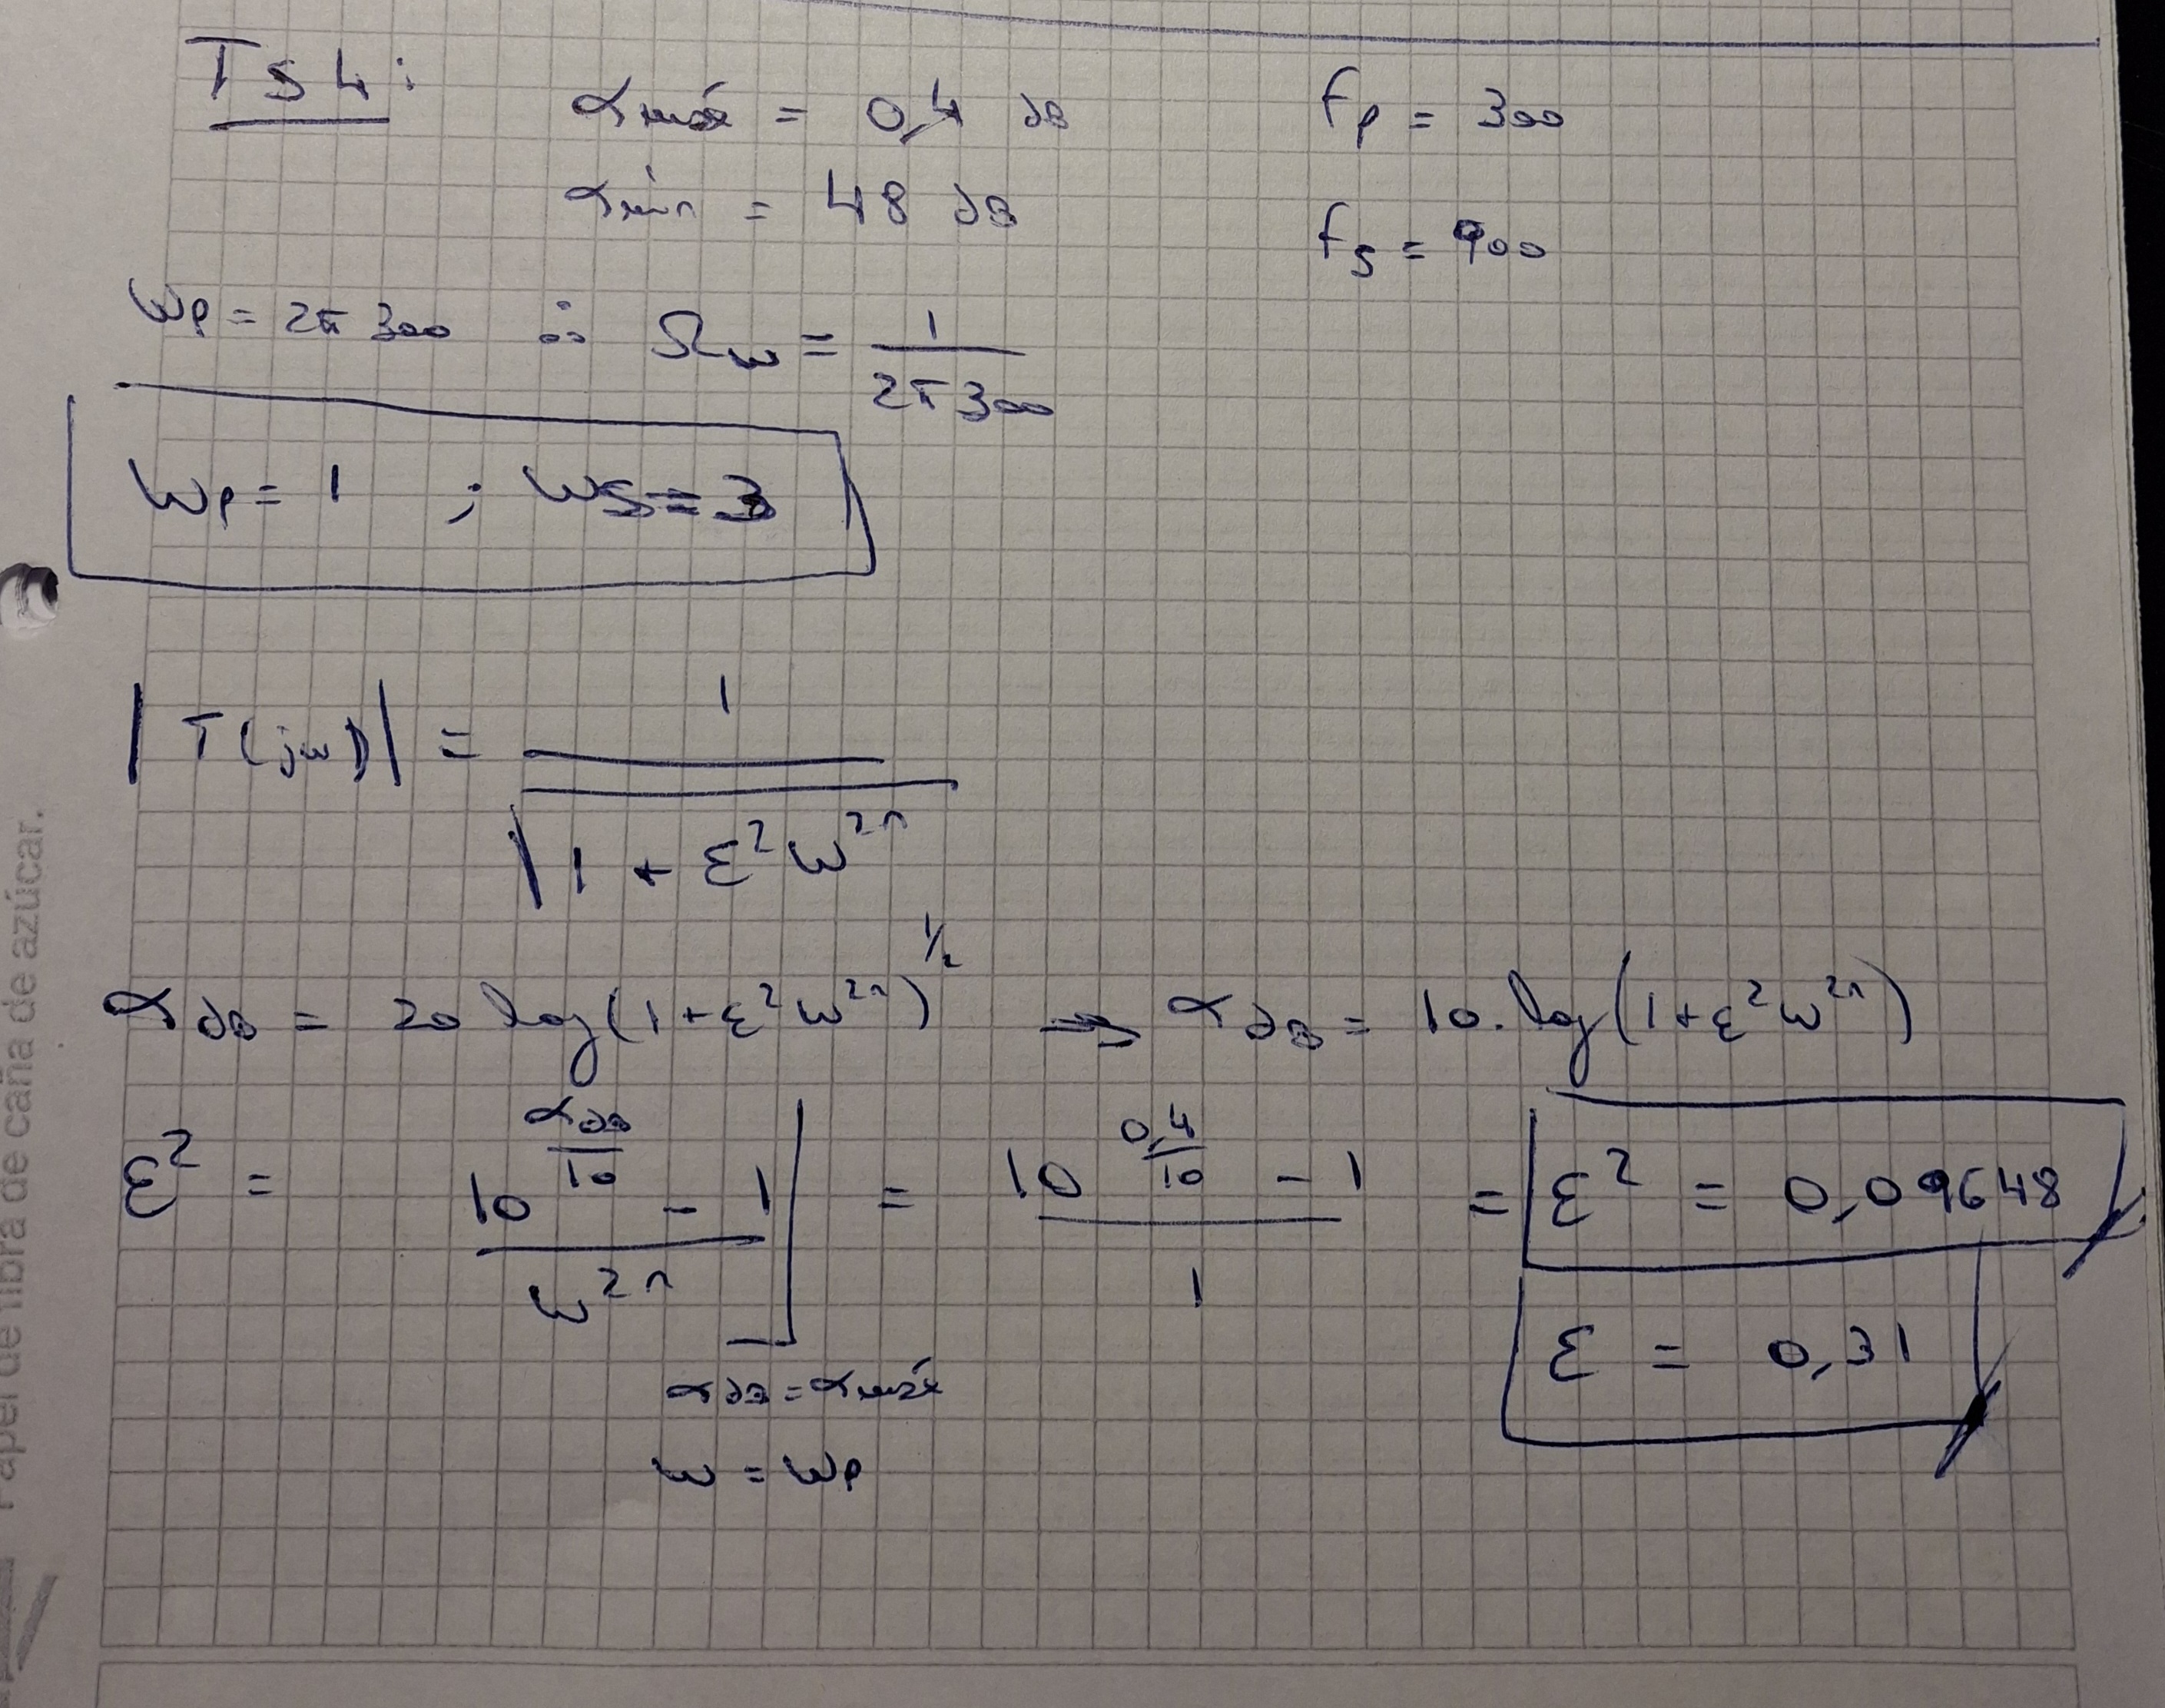 TS4:
αmáx = 0,4 dB
fp = 300
αmín = 48 dB
fs = 900
ωp = 2π 300 ∴ Ωω = 1 / 2π 300
ωp = 1 ; ωs = 3
|T(jω)| = 1 / √(1 + ε² ω²ⁿ)
αdB = 20 log(1 + ε² ω²ⁿ)^1/2 ⇒ αdB = 10. log(1 + ε² ω²ⁿ)
ε² = (10^(αdB/10) - 1) / ω²ⁿ ] = (10^(0,4/10) - 1) / 1 = ε² = 0,09648
αdB = αmáx
ω = ωp
ε = 0,31
Papel de fibra de caña de azúcar.